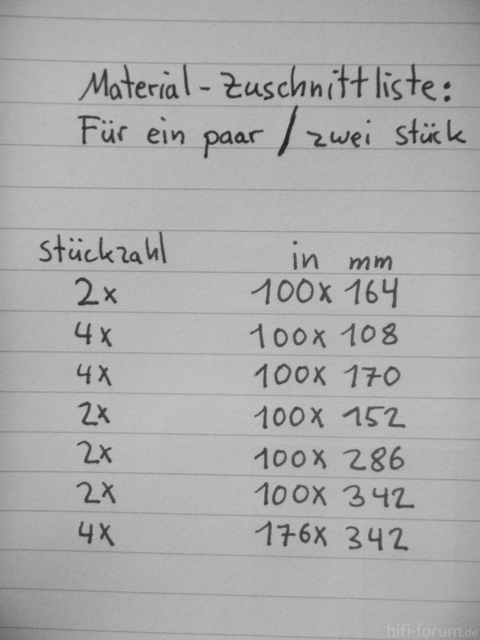 Material-Zuschnittliste:
Für ein paar / zwei stück
stückzahl in mm
2x 100x 164
4x 100x 108
4x 100x 170
2x 100x 152
2x 100x 286
2x 100x 342
4x 176x 342
hifi-forum.de